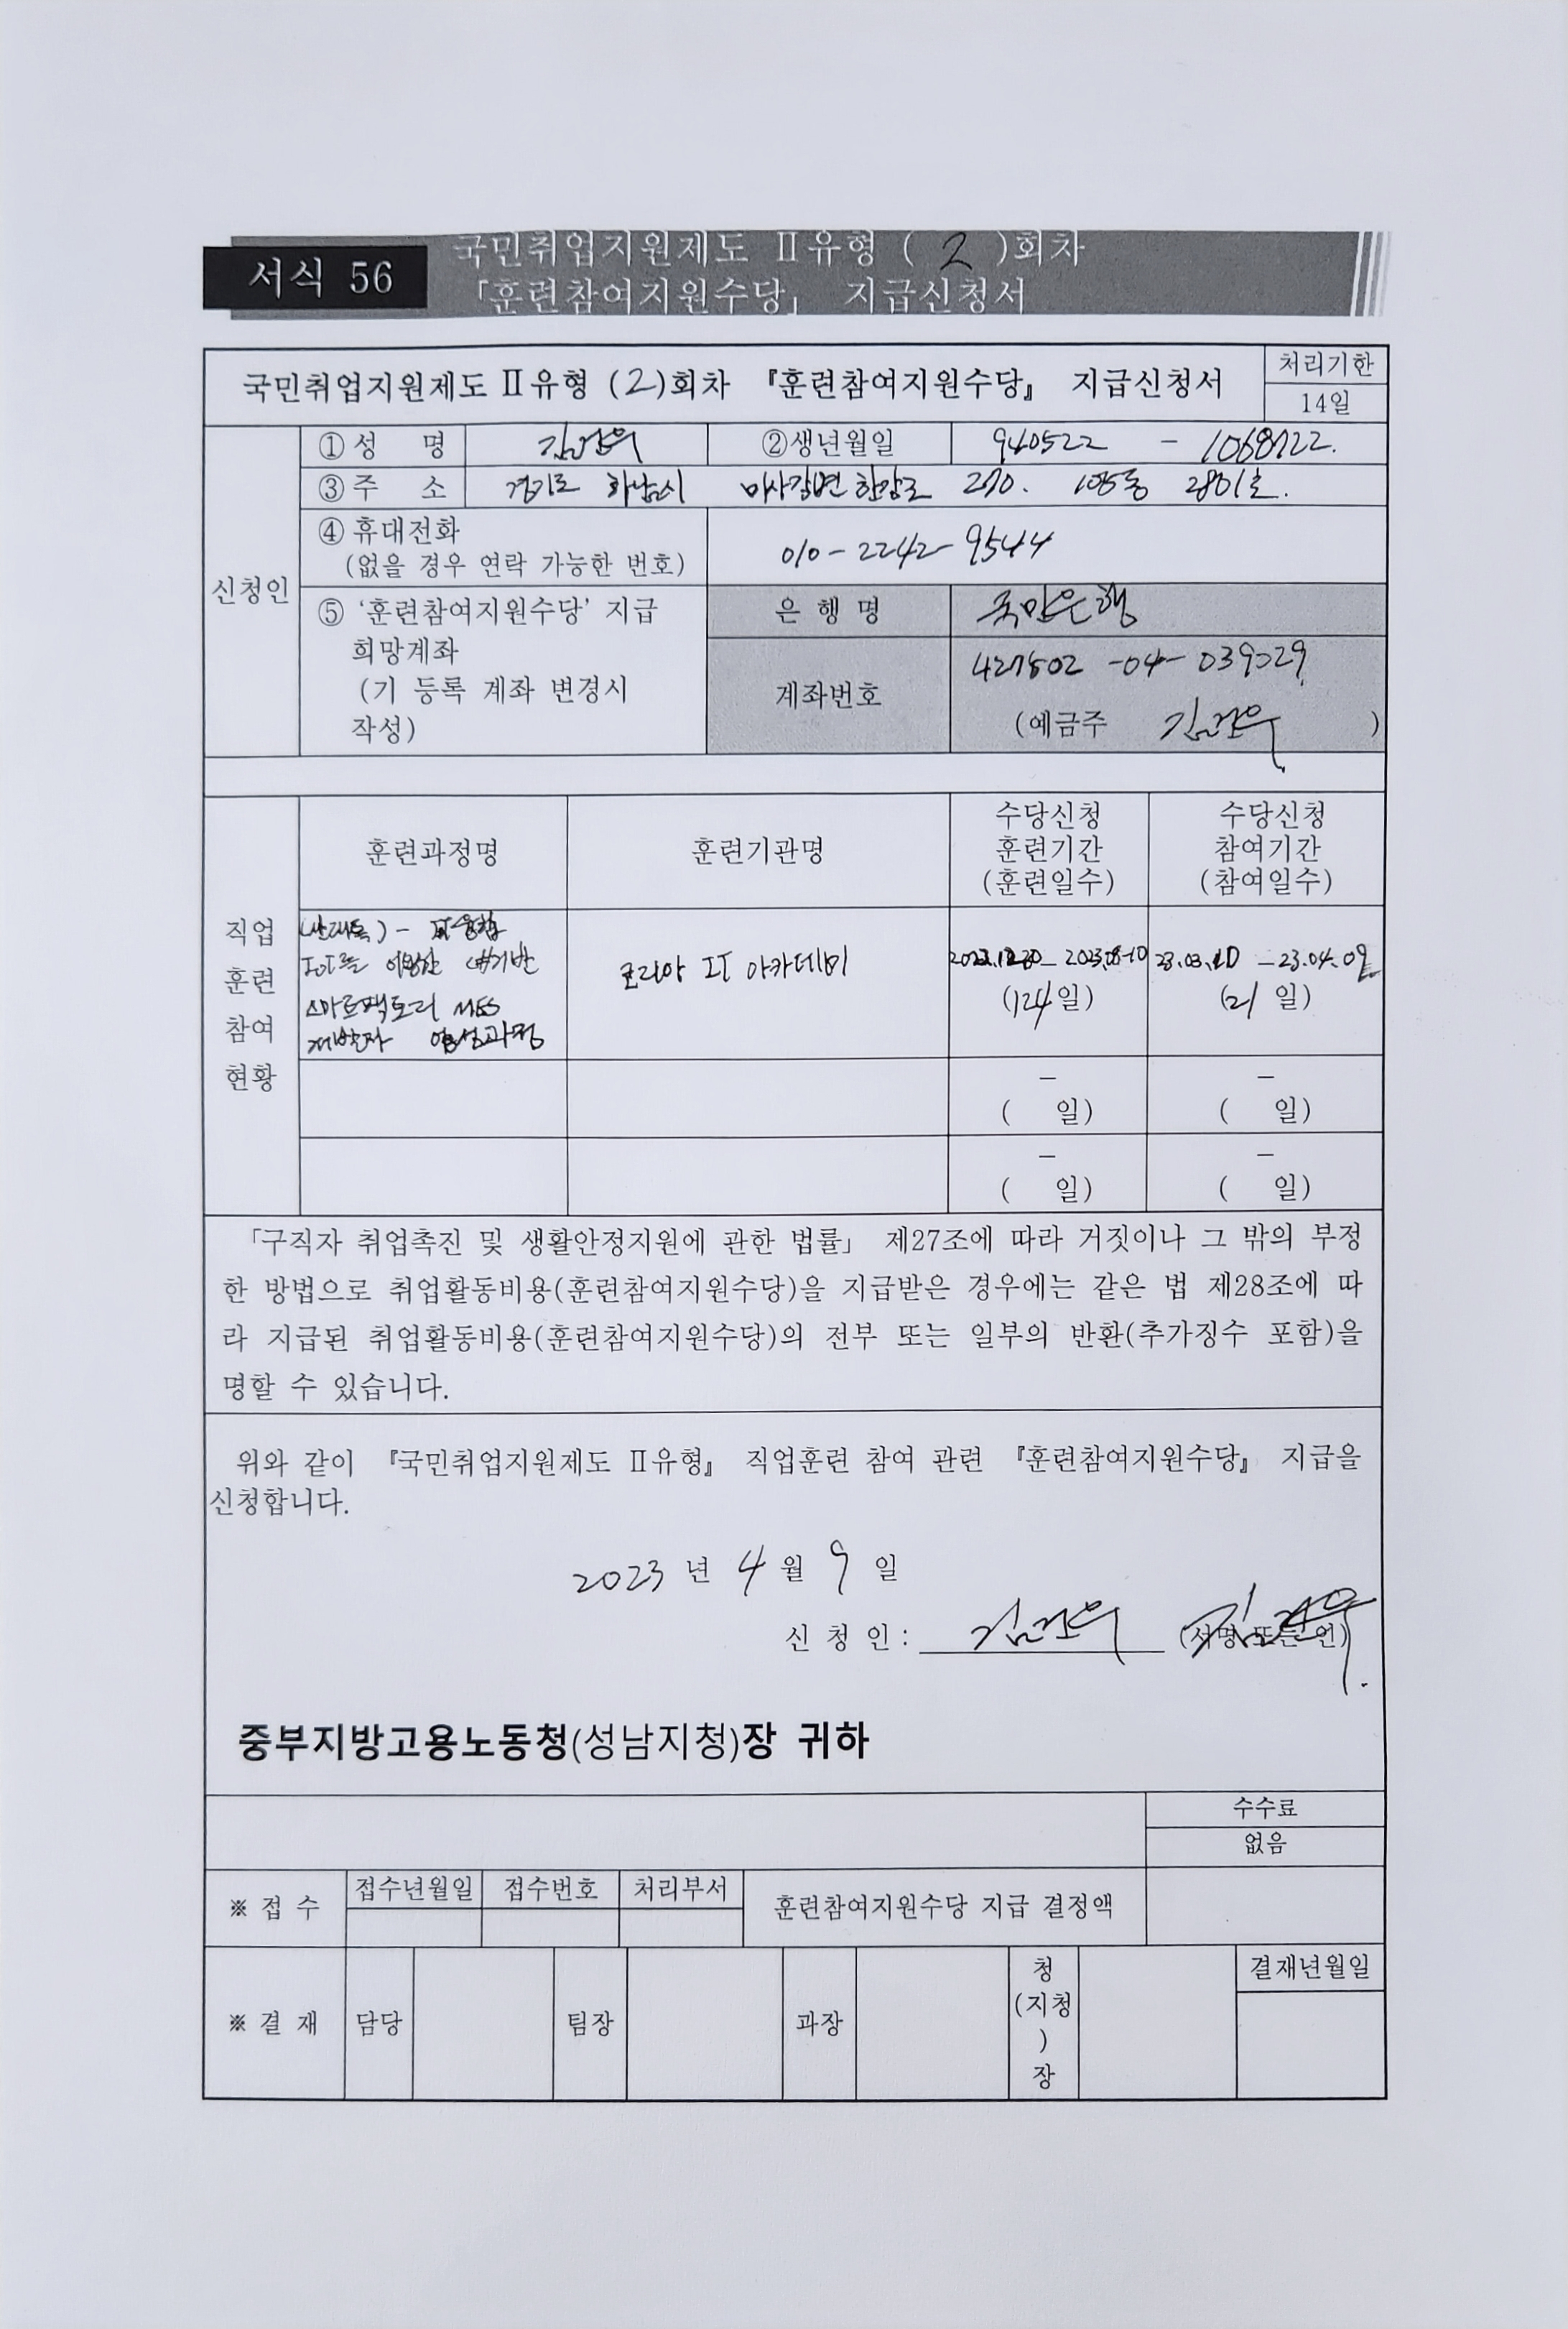 서식 56
국민취업지원제도 Ⅱ유형 ( 2 )회차
「훈련참여지원수당」 지급신청서
국민취업지원제도 Ⅱ유형 (2)회차 『훈련참여지원수당』 지급신청서
처리기한
14일
신청인
① 성 명 김건우
② 생년월일 940522 - 1068122.
③ 주 소 경기도 하남시 미사강변한강로 270. 105동 2801호.
④ 휴대전화
(없을 경우 연락 가능한 번호)
010-2242-9544
⑤ ‘훈련참여지원수당’ 지급
희망계좌
(기 등록 계좌 변경시
작성)
은 행 명 국민은행
계좌번호 427802-04-039729
(예금주 김건우 )
직업
훈련
참여
현황
훈련과정명
훈련기관명
수당신청
훈련기간
(훈련일수)
수당신청
참여기간
(참여일수)
(산대특) - 융합
IoT를 이용한 웹기반
스마트팩토리 MES
개발자 양성과정
코리아 IT 아카데미
(124일)
23.03.10 - 23.04.09
(21 일)
-
( 일)
-
( 일)
-
( 일)
-
( 일)
「구직자 취업촉진 및 생활안정지원에 관한 법률」 제27조에 따라 거짓이나 그 밖의 부정
한 방법으로 취업활동비용(훈련참여지원수당)을 지급받은 경우에는 같은 법 제28조에 따
라 지급된 취업활동비용(훈련참여지원수당)의 전부 또는 일부의 반환(추가징수 포함)을
명할 수 있습니다.
위와 같이 『국민취업지원제도 Ⅱ유형』 직업훈련 참여 관련 『훈련참여지원수당』 지급을
신청합니다.
2023 년 4 월 9 일
신 청 인 : 김건우 (서명 또는 인) 김건우
중부지방고용노동청(성남지청)장 귀하
수수료
없음
※ 접 수
접수년월일
접수번호
처리부서
훈련참여지원수당 지급 결정액
※ 결 재
담당
팀장
과장
청
(지청
)
장
결재년월일